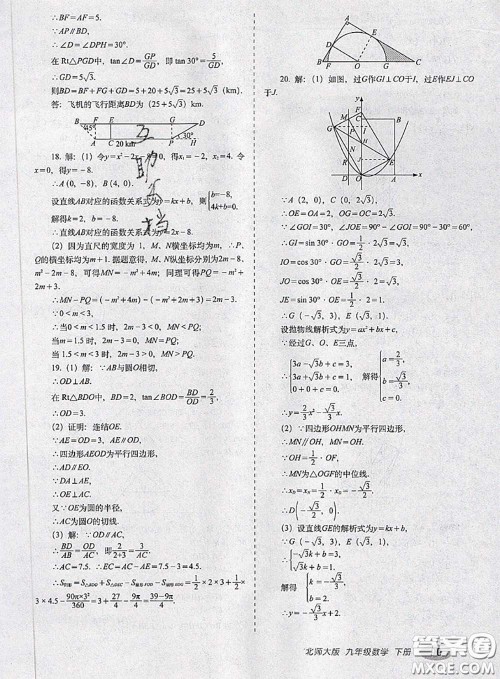 ∴BF=AF=5.
∵AP∥BD,
∴∠D=∠DPH=30°.
在Rt△PGD中, tan∠D=GP/GD, 即tan30°=5/GD
∴GD=5√3.
则BD=BF+FG+GD=5+20+5√3=25+5√3 (km).
答: 飞机的飞行距离BD为 (25+5√3) km.
B F E G D
45° 30°
A C 20 km P H
互助互档
18. 解: (1) 令y=x²-2x-8=0, 得x₁=-2, x₂=4. 令
x=0, 得y=-8.
∴A (0, -8), B (4, 0).
设直线AB对应的函数关系式为y=kx+b, 则{b=-8, 4k+b=0.
解得k=2, b=-8.
∴直线AB对应的函数关系式为y=2x-8.
(2) 因为直尺的宽度为 1, M、N横坐标均为m, ∴P、
Q的横坐标均为m+1. 据题意得, M、N纵坐标分别为2m-8,
m²-2m-8, 可得MN=-m²+4m; 同理可得PQ=-m²+
2m+3.
∴MN-PQ=(-m²+4m)-(-m²+2m+3)=2m-3.
∵0<m<3,
∴当0<m<1.5 时, 2m-3<0, 即MN<PQ;
当m=1.5 时, 2m-3=0, 即MN=PQ;
当 1.5<m<3 时, 2m-3>0, 即MN>PQ.
19. (1) 解: ∵AB与圆O相切,
∴OD⊥AB.
在Rt△BDO中, BD=2, tan∠BOD=BD/OD=2/3,
∴OD=3.
(2) 证明: 连结OE.
∵AE=OD=3, AE∥OD,
∴四边形AEOD为平行四边形,
∴AD∥EO.
∵DA⊥AE,
∴OE⊥AC.
又∵OE为圆的半径,
∴AC为圆O的切线.
(3) 解: ∵OD∥AC,
∴BD/AB=OD/AC, 即2/(2+3)=3/AC.
∴AC=7.5. ∴EC=AC-AE=7.5-3=4.5.
∴S阴影=S△BDO+S△OEC-S扇形FOD-S扇形EOG=1/2×2×3+1/2×
3×4.5-90π×3²/360=3+27/4-9π/4=(39-9π)/4
A
D E
B F O G C
20. 解: (1) 如图, 过G作GI⊥CO于I, 过E作EJ⊥CO
于J.
∵A (2, 0), C (0, 2√3),
∴OE=OA=2, OG=OC=2√3.
∵∠GOI=30°, ∠JOE=90°-∠GOI=90°-30°=60°,
∴GI=sin30°·GO=1/2·2√3=√3.
IO=cos30°·GO=√3/2·2√3=3.
JO=cos30°·OE=√3/2·2=√3.
JE=sin30°·OE=1/2·2=1.
∴G (-√3, 3), E (1, √3).
设抛物线解析式为y=ax²+bx+c,
∵经过G、O、E三点,
∴{3a-√3b+c=3, c=0, a+b+c=√3. 解得{a=2/3, b=√3/3, c=0.
∴y=2/3x²+√3/3x.
(2) ∵四边形OHMN为平行四边形,
∴MN∥OH, MN=OH.
∵OH=1/2·OF,
∴MN为△OGF的中位线.
∴x_D=x_N=1/2·x_G=-√3/2.
(3) 设直线GE的解析式为y=kx+b,
∵G (-√3, 3), E (1, √3),
∴{-√3k+b=3, k+b=√3.
北师大版 九年级数学 下册
答案圈
MXQE.COM